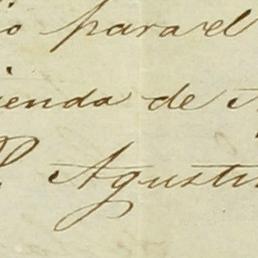 para el
ienda de
Agustin